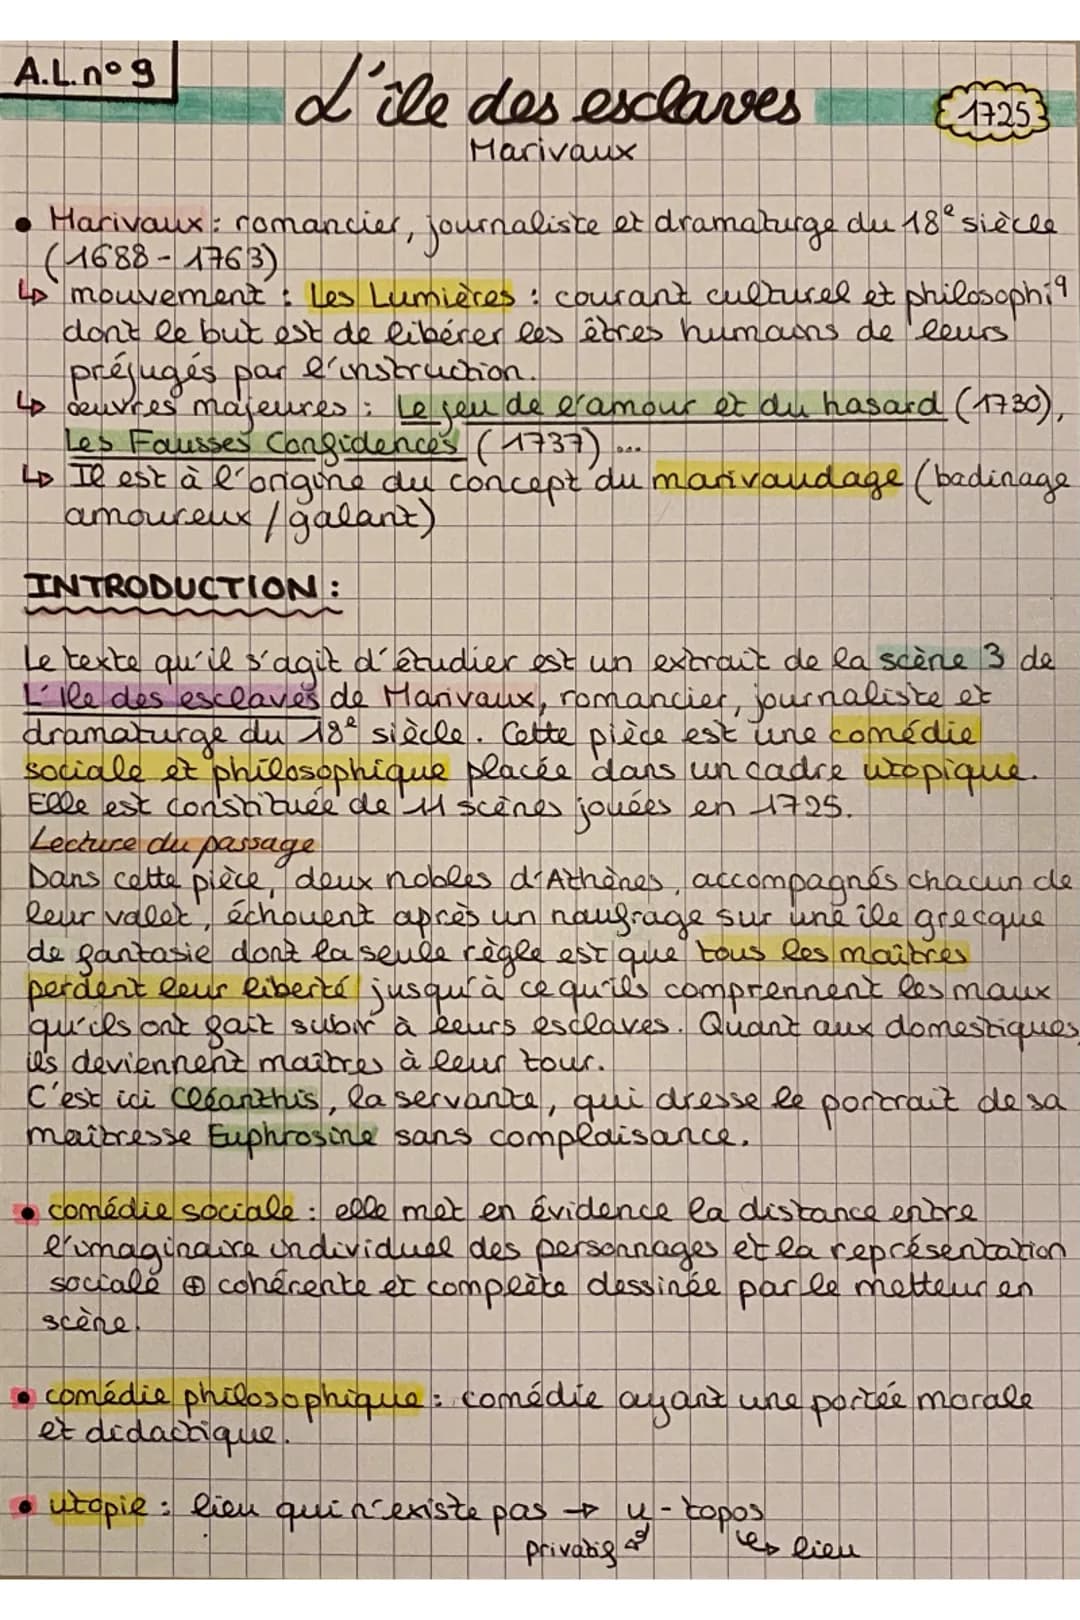 A.L. n° 9
L'île des esclaves
1725
Marivaux
• Marivaux : romancier, journaliste et dramaturge du 18e siècle
(1688 - 1763)
↳ mouvement : Les Lumières : courant culturel et philosophiq
dont le but est de libérer les êtres humains de leurs
préjugés par l'instruction.
↳ œuvres majeures : Le jeu de l'amour et du hasard (1730),
Les Fausses Confidences (1737) ...
↳ Il est à l'origine du concept du marivaudage (badinage
amoureux / galant)
INTRODUCTION :
Le texte qu'il s'agit d'étudier est un extrait de la scène 3 de
L'île des esclaves de Marivaux, romancier, journaliste et
dramaturge du 18e siècle. Cette pièce est une comédie
sociale et philosophique placée dans un cadre utopique.
Elle est constituée de 11 scènes jouées en 1725.
Lecture du passage
Dans cette pièce, deux nobles d'Athènes, accompagnés chacun de
leur valet, échouent après un naufrage sur une île grecque
de fantasie dont la seule règle est que tous les maîtres
perdent leur liberté jusqu'à ce qu'ils comprennent les maux
qu'ils ont fait subir à leurs esclaves. Quant aux domestiques,
ils deviennent maîtres à leur tour.
C'est ici Cléanthis, la servante, qui dresse le portrait de sa
maîtresse Euphrosine sans complaisance.
• comédie sociale : elle met en évidence la distance entre
l'imaginaire individuel des personnages et la représentation
sociale ⊕ cohérente et complète dessinée par le metteur en
scène.
• comédie philosophique : comédie ayant une portée morale
et didactique.
• utopie : lieu qui n'existe pas → u - topos
privatif ↲ ↳ lieu